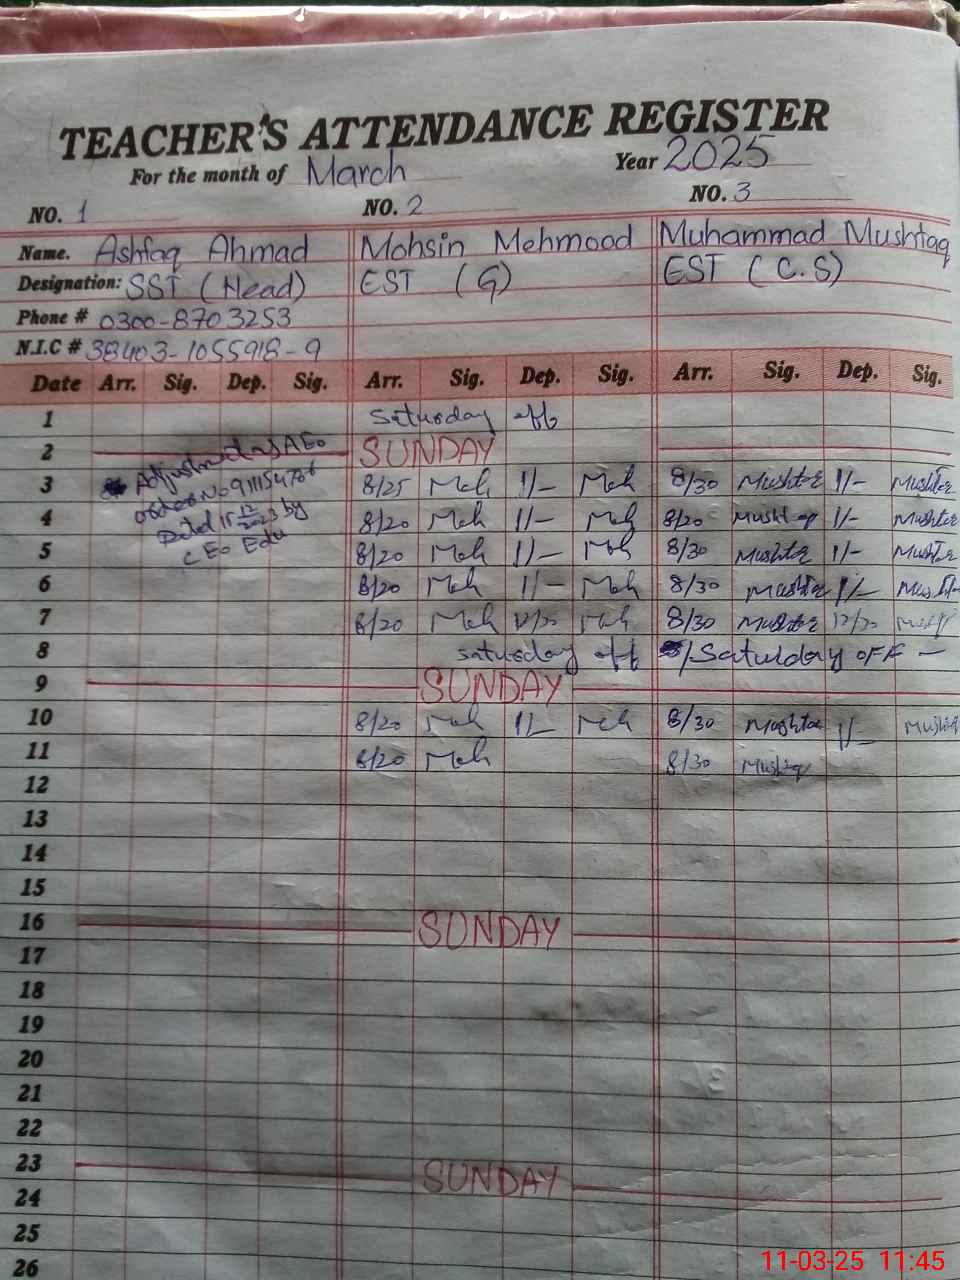 TEACHER'S ATTENDANCE REGISTER
For the month of March Year 2025
NO. 1 NO. 2 NO. 3
Name. Ashfaq Ahmad Mohsin Mehmood Muhammad Mushtaq
Designation: SST (Head) EST (G) EST (C.S)
Phone # 0300-8703253
N.I.C # 38403-1055918-9
Date Arr. Sig. Dep. Sig. Arr. Sig. Dep. Sig. Arr. Sig. Dep. Sig.
1 Saturday off
2 SUNDAY
3 8/25 Meh 1/- Meh 8/30 Mushtaq 1/- Mushtaq
4 8/20 Meh 1/- Meh 8/20 Mushtaq 1/- Mushtaq
5 8/20 Meh 1/- Meh 8/30 Mushtaq 1/- Mushtaq
6 8/20 Meh 1/- Meh 8/30 Mushtaq 1/- Mushtaq
7 8/20 Meh 12/20 Meh 8/30 Mushtaq 12/20
Adjusted as AEO
order No
Dated 15 12 2023 by
CEO Edu
8 Saturday off Saturday OFF -
9 SUNDAY
10 8/20 Meh 1/- Meh 8/30 Mushtaq 1/- Mushtaq
11 8/20 Meh 8/30 Mushtaq
12
13
14
15
16 SUNDAY
17
18
19
20
21
22
23 SUNDAY
24
25
26
11-03-25 11:45